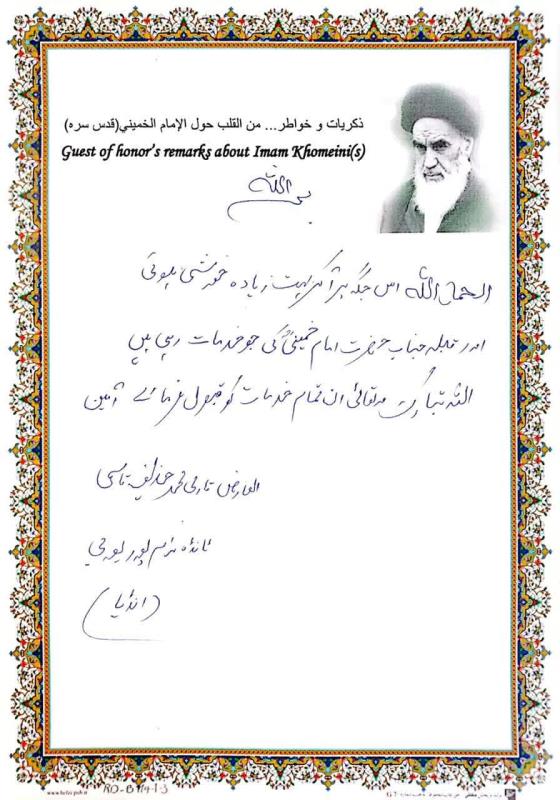 ذكريات و خواطر... من القلب حول الإمام الخميني(قدس سره)
Guest of honor's remarks about Imam Khomeini(s)
بسم اللہ
الحمد اللہ اس جگہ پر آکر بہت زیادہ خوشی ہوئی
اور قبلہ جناب حضرت امام خمینیؒ کی جو خدمات رہی ہیں
اللہ تبارک و تعالیٰ ان تمام خدمات کو قبول فرمائے آمین
العارض قاری محمد حذیفہ قاسمی
ٹانڈہ رام پور یو پی
(انڈیا)
RO-B 914-1-3